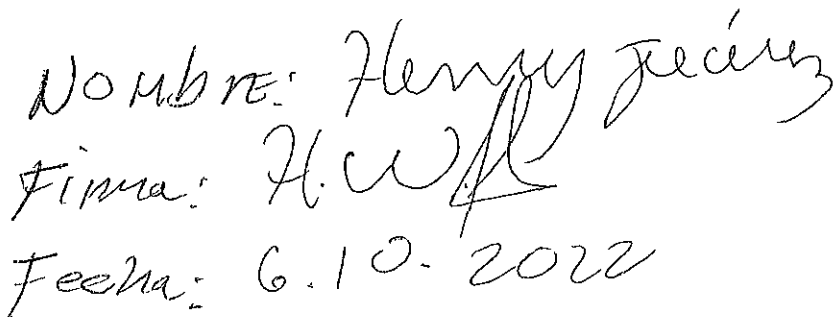 Nombre: Henry Juárez
Firma: H.W.
Fecha: 6.10.2022